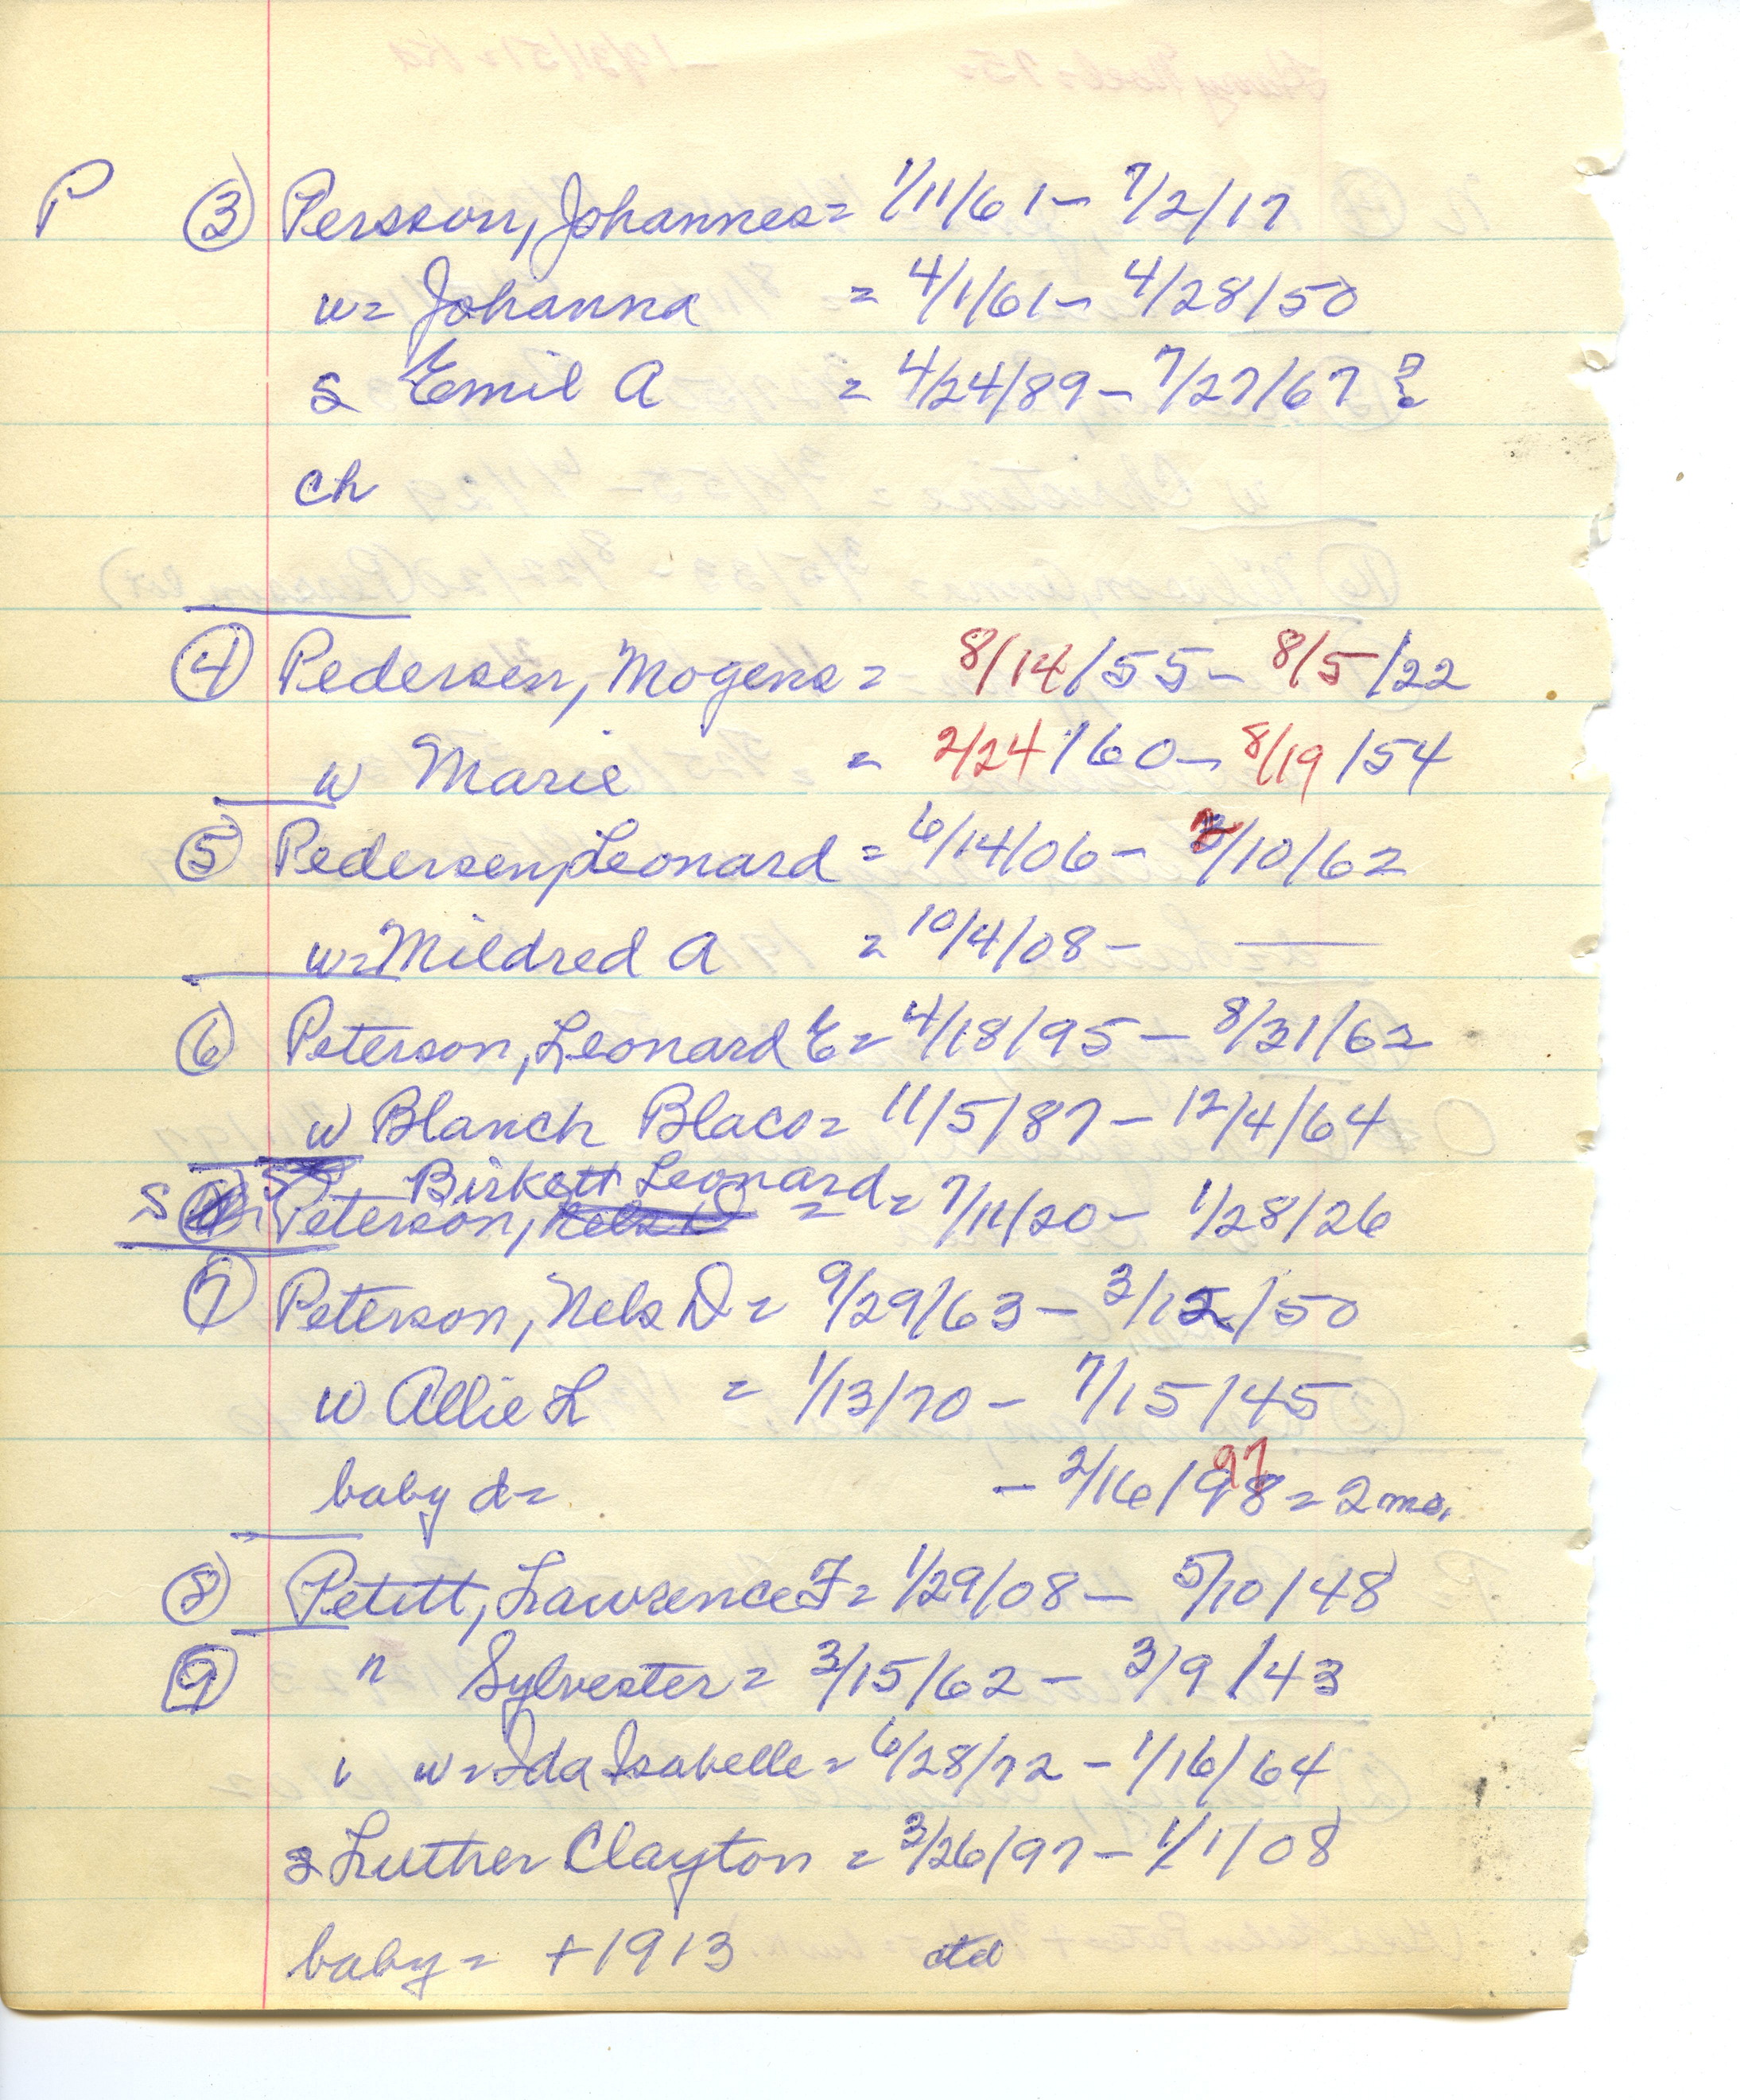 P ③ Persson, Johannes = 1/11/61 - 7/2/17
w = Johanna = 4/1/61 - 4/28/50
s Emil A = 4/24/89 - 7/27/67 ?
ch
④ Pedersen, Mogens = 8/14/55 - 8/5/22
w Marie = 2/24/60 - 8/19/54
⑤ Pedersen, Leonard = 6/14/06 - 2/10/62
w = Mildred A = 10/4/08 - —
⑥ Peterson, Leonard E = 4/18/95 - 8/31/62
w Blanch Blaco = 11/5/87 - 12/4/64
s Peterson, Birkett Leonard = 7/11/20 - 1/28/26
⑦ Peterson, Nels D = 9/29/63 - 3/12/50
w Allie L = 1/13/70 - 7/15/45
baby d = - 2/16/98 97 = 2 mo.
⑧ Petitt, Lawrence F = 1/29/08 - 5/10/48
9 " Sylvester = 3/15/62 - 3/9/43
" w = Ida Isabelle = 6/28/72 - 1/16/64
s Luther Clayton = 3/26/97 - 1/1/08
baby = + 1913 ctd